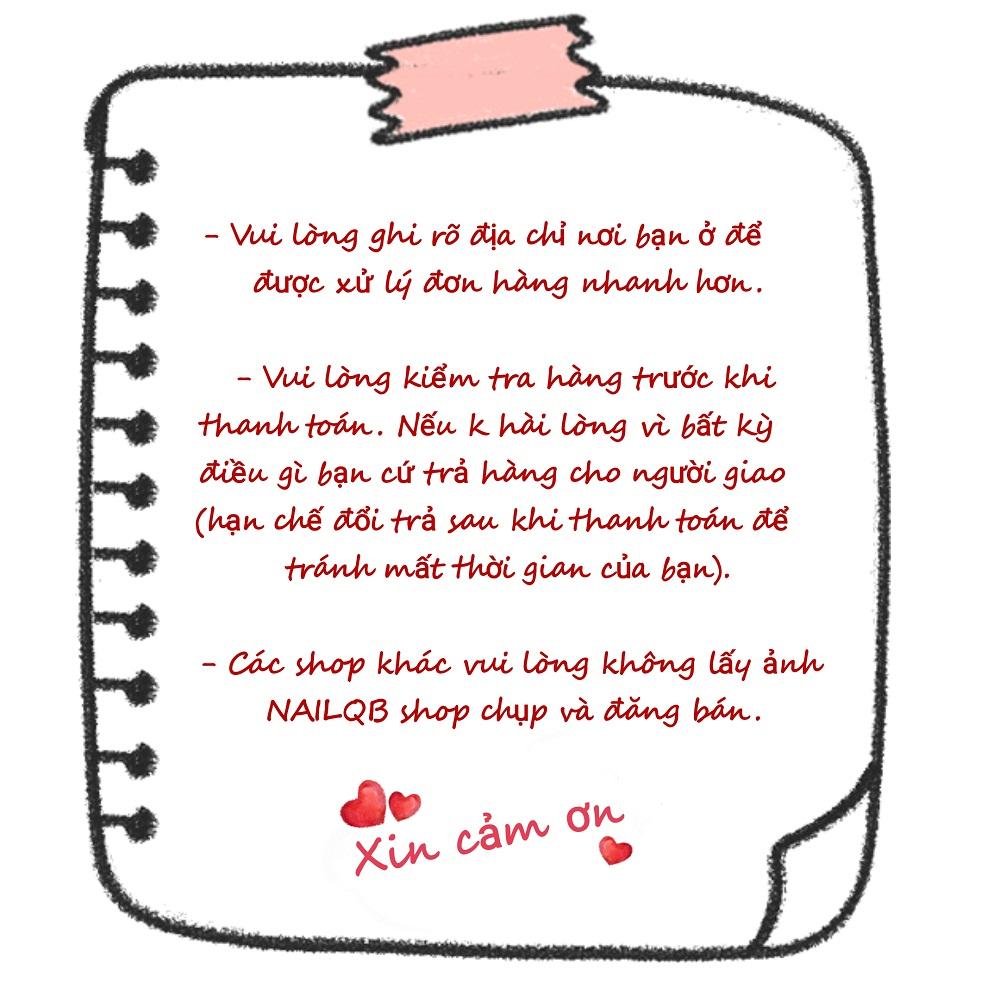 - Vui lòng ghi rõ địa chỉ nơi bạn ở để
được xử lý đơn hàng nhanh hơn.
- Vui lòng kiểm tra hàng trước khi
thanh toán. Nếu k hài lòng vì bất kỳ
điều gì bạn cứ trả hàng cho người giao
(hạn chế đổi trả sau khi thanh toán để
tránh mất thời gian của bạn).
- Các shop khác vui lòng không lấy ảnh
NAILQB shop chụp và đăng bán.
Xin cảm ơn